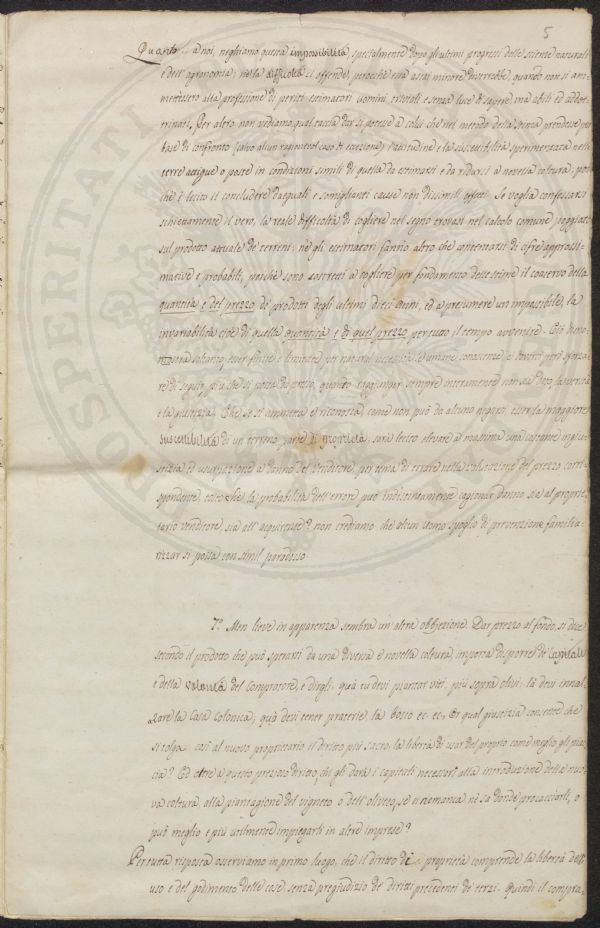 5
Quanto a noi, neghiamo questa impossibilità, specialmente dopo gli ultimi progressi delle scienze naturali
e dell'agronomia; nè la difficoltà ci offende, perocchè essa assai minore diverrebbe, quando non si am-
mettessero alla professione di periti estimatori uomini, triviali e senza luce di sapere, ma abili ed addot-
trinati. Per altro non vediamo qual taccia dar si potesse a colui che nel metodo della stima prendesse per
base di confronto (salvo alcun ragionevol caso di eccezione) l'attitudine e la suscettibilità sperimentata nelle
terre attigue o poste in condizioni simili di quella da estimarsi e da ridursi a novella coltura; poi
che è lecito il concludere da eguali e somiglianti cause non dissimili effetti. Se voglia confessarsi
schiettamente il vero, la reale difficoltà di cogliere nel segno trovasi nel calcolo comune poggiato
sul prodotto attuale de' terreni: nè gli estimatori fanno altro che contentarsi di cifre approssi-
mative e probabili, perchè sono costretti a togliere per fondamento delle stime il coacervo della
quantità e del prezzo de' prodotti degli ultimi dieci anni, ed a presumere un impossibile, la
invariabilità cioè di quella quantità e di quel prezzo per tutto il tempo avvenire. Ciò dimo-
stra soltanto, esser finite e limitate per natural necessità le umane conoscenze, e doversi però sforza
re di seguir più che si possa da presso, quando raggiunger sempre interamente non sia dato, la verità
e la giustizia. Che se si ammetta e riconosca, come non può da alcuno negarsi, esser la maggiore
suscettibilità di un terreno parte di proprietà; sarà lecito elevare a massima una costante ingiu-
stizia ed usurpazione a danno del venditore, per tema di errare nella valutazione del prezzo corri-
spondente, tosto che la probabilità dell'errore può indistintamente cagionar danno sia al proprie-
tario venditore, sia all'acquirente? non crediamo che alcun uomo spoglio di prevenzione familia-
rizzar si possa con simil paradosso.
7.° Men lieve in apparenza sembra un'altra obbjezione. Dar prezzo al fondo, si dice
secondo il prodotto che può sperarsi da una diversa e novella coltura, importa disporre de' Capitali
e della volontà del compratore, e dirgli: quà tu devi piantar viti, più sopra olivi: là devi innal-
zare la Casa Colonica, quà devi tener praterie, là bosco ec. ec. Or qual giustizia consente che
si tolga così al nuovo proprietario il diritto più sacro, la libertà di usar del proprio come meglio gli piac-
cia? Ed oltre a questo prezioso diritto, chi gli darà i capitali necessarj alla introduzione della nuo-
va coltura, alla piantagione del vigneto o dell'oliveto, se n'è mancante nè sa donde procacciarli, o
può meglio e più utilmente impiegarli in altre imprese?
Per tutta risposta osserviamo in primo luogo, che il diritto di proprietà comprende la libertà dell'
uso e del godimento delle cose senza pregiudizio de' diritti precedenti de' terzi. Quindi il compra-